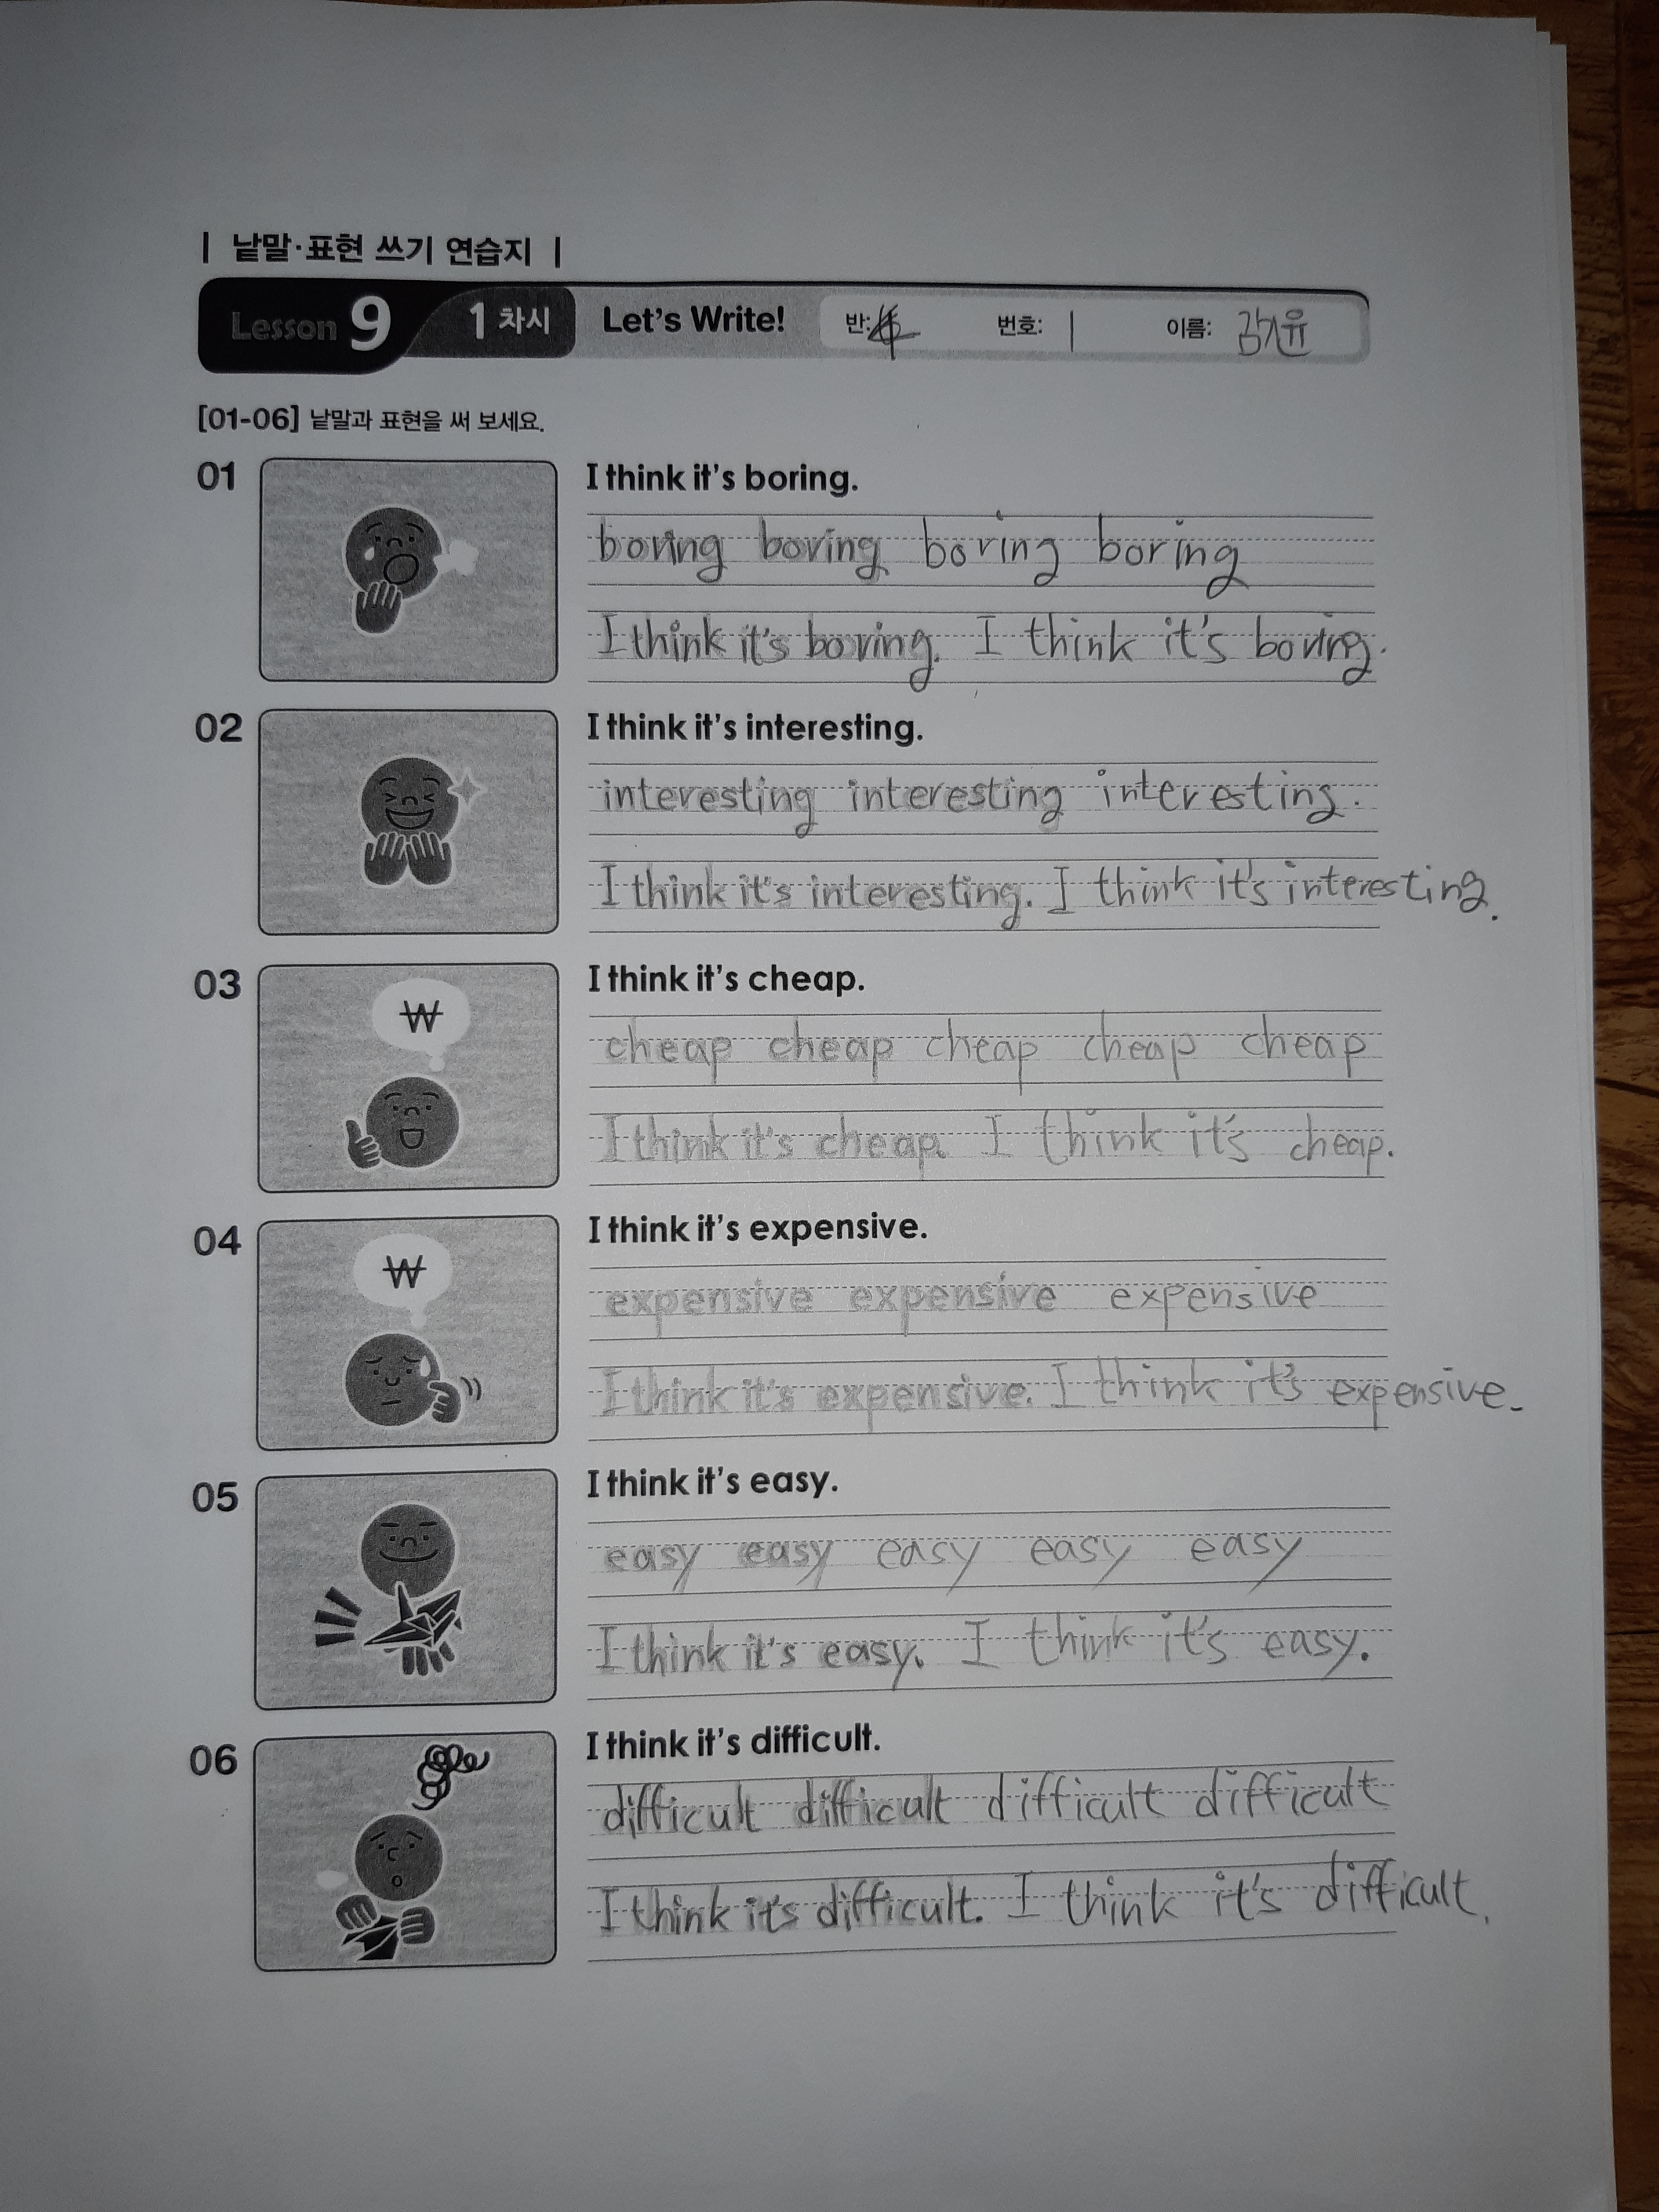 | 낱말·표현 쓰기 연습지 |
Lesson 9 1 차시 Let's Write! 반: 번호: 1 이름: 김지윤
[01-06] 낱말과 표현을 써 보세요.
01 I think it's boring.
boring boring boring boring
I think it's boring. I think it's boring.
02 I think it's interesting.
interesting interesting interesting.
I think it's interesting. I think it's interesting.
03 I think it's cheap.
₩
cheap cheap cheap cheap cheap
I think it's cheap. I think it's cheap.
04 I think it's expensive.
₩
expensive expensive expensive
I think it's expensive. I think it's expensive.
05 I think it's easy.
easy easy easy easy easy
I think it's easy. I think it's easy.
06 I think it's difficult.
difficult difficult difficult difficult
I think it's difficult. I think it's difficult.